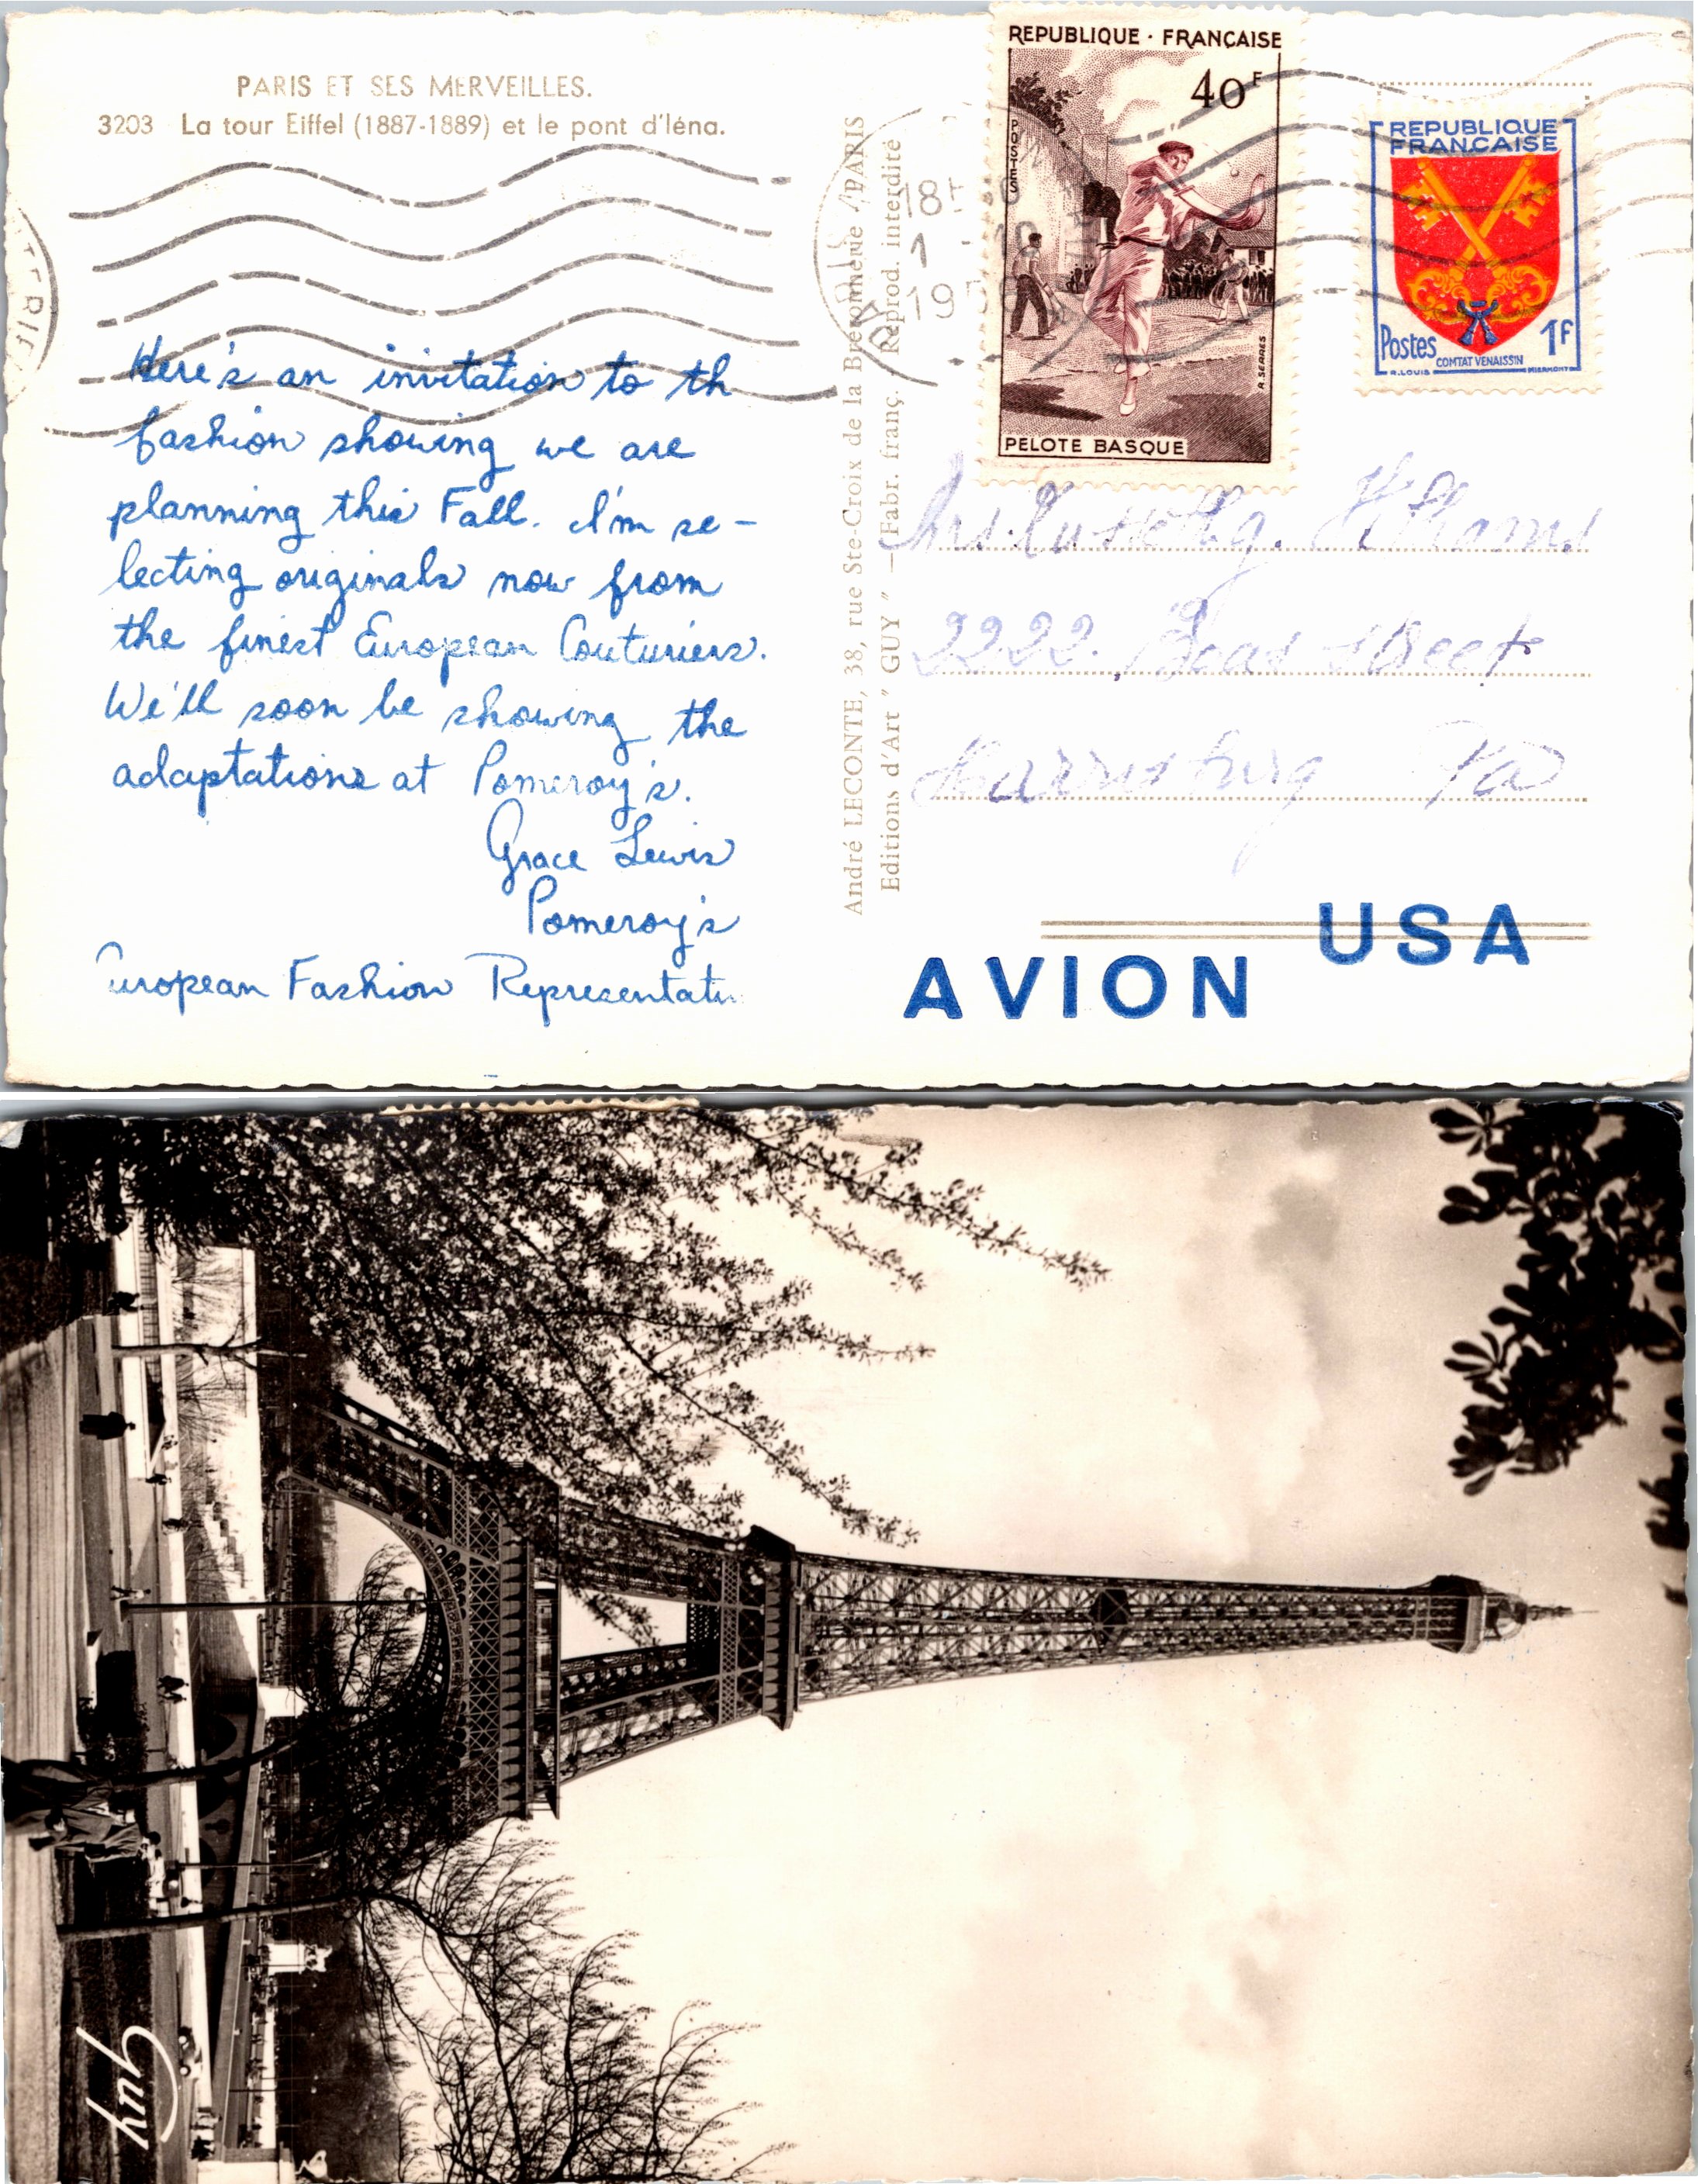 PARIS ET SES MERVEILLES.
3203 La tour Eiffel (1887-1889) et le pont d'Iéna.
Here's an invitation to th
fashion showing we are
planning this Fall. I'm se-
lecting originals now from
the finest European Couturiers.
We'll soon be showing the
adaptations at Pomeroy's.
Grace Lewis
Pomeroy's
European Fashion Representati
André LECONTE, 38, rue Ste-Croix de la Bretonnerie, PARIS
Editions d'Art "GUY" — Fabr. franç. Reprod. interdite
REPUBLIQUE · FRANÇAISE
40F
POSTES
R. SERRES
PELOTE BASQUE
REPUBLIQUE
FRANÇAISE
Postes 1F
COMTAT VENAISSIN
R. LOUIS MIERMONT
PARIS
Mrs.
2222. Boas Street
Harrisburg Pa
USA
AVION
Guy